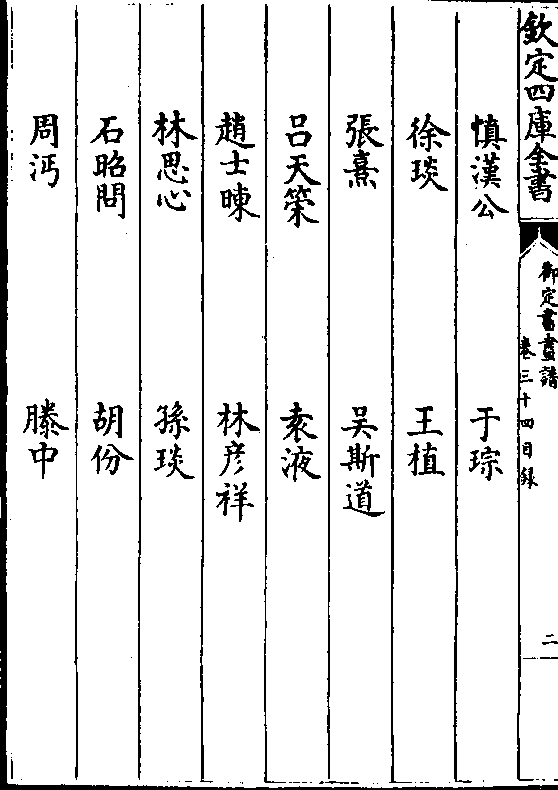 欽定四庫全書
御定書畫譜
卷三十四目録
二
慎漢公 于琮
徐琰 王植
張熹 吳斯道
吕天策 袁液
趙士暕 林彦祥
林思心 孫琰
石昭問 胡份
周沔 滕中